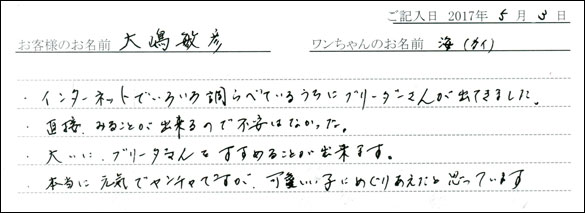 ご記入日 2017年 5月 3日
お客様のお名前 大嶋敏彦 ワンちゃんのお名前 海(カイ)
・インターネットでいろいろ調べているうちにブリーダーさんが出てきました。
・直接、みることが出来るので不安はなかった。
・大いに、ブリーダーさんをすすめることが出来ます。
・本当に元気でヤンチャですが、可愛いい子にめぐりあえたと思っています